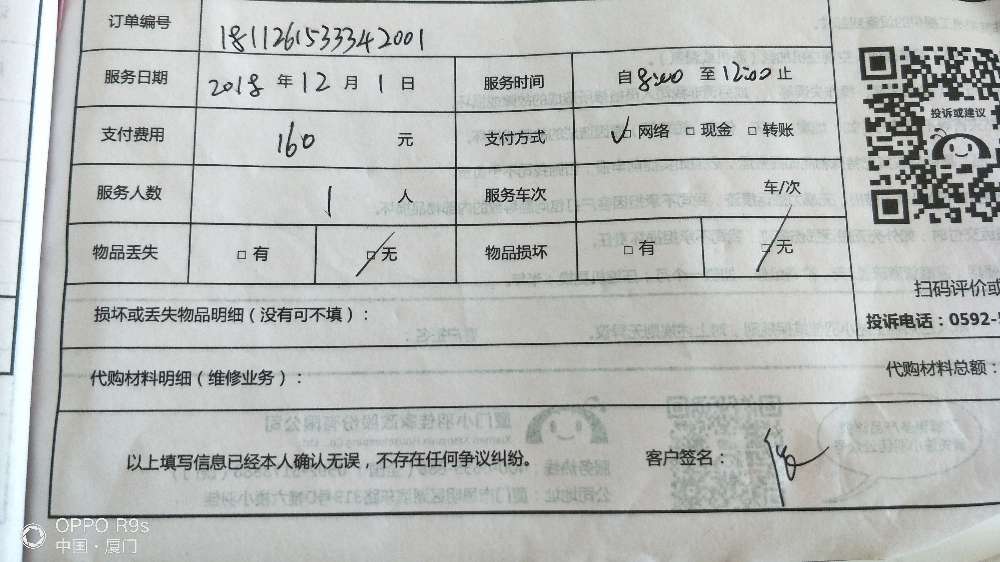 订单编号 1811261533342001
服务日期 2018 年 12 月 1 日 服务时间 自 8:00 至 12:00 止
支付费用 160 元 支付方式 ☑ 网络 □ 现金 □ 转账
投诉或建议
服务人数 1 人 服务车次 车/次
物品丢失 □ 有 ☑ 无 物品损坏 □ 有 ☑ 无
扫码评价或
损坏或丢失物品明细（没有可不填）：
投诉电话：0592-
代购材料明细（维修业务）：
代购材料总额：
以上填写信息已经本人确认无误，不存在任何争议纠纷。 客户签名：
OPPO R9s
中国·厦门